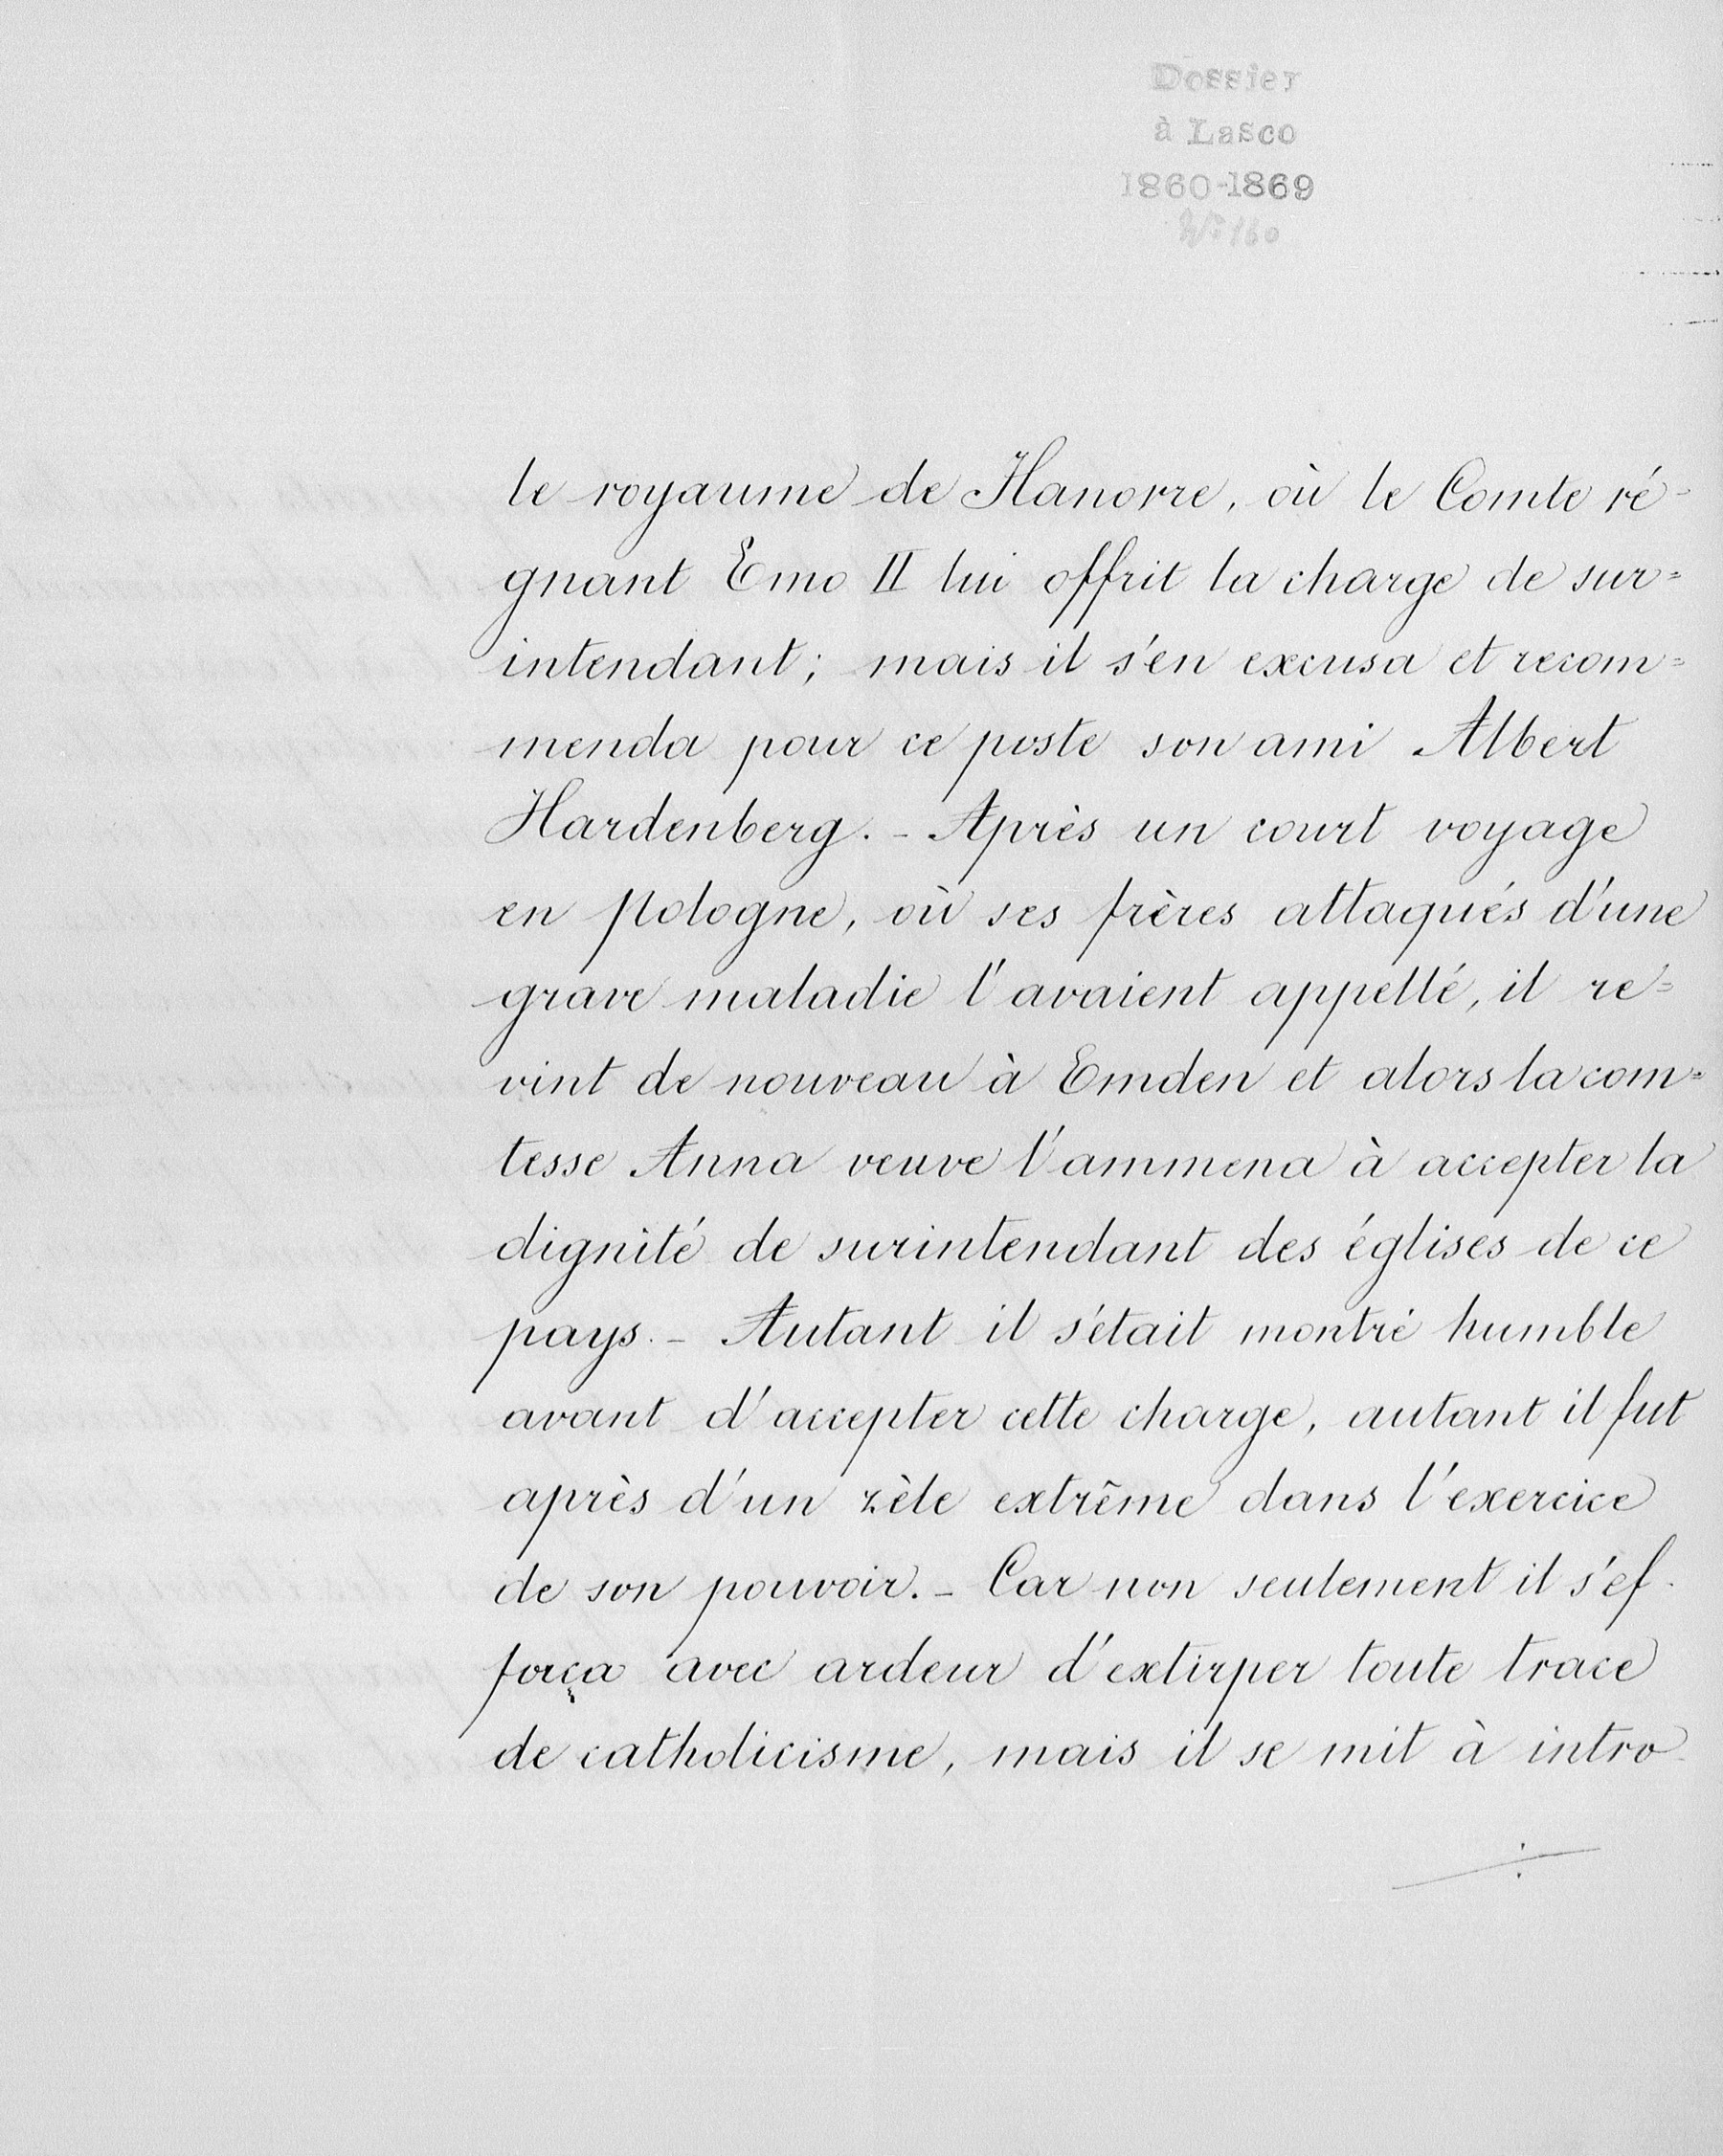 Dossier
à Lasco
1860-1869
le royaume de Hanovre, où le Comte ré-
gnant Emo II lui offrit la charge de sur=
intendant; mais il s'en excusa et recom=
menda pour ce poste son ami Albert
Hardenberg. - Après un court voyage
en Pologne, où ses frères attaqués d'une
grave maladie l'avaient appellé, il re=
vint de nouveau à Emden et alors la com=
tesse Anna veuve l'ammena à accepter la
dignité de surintendant des églises de ce
pays. - Autant il s'était montré humble
avant d'accepter cette charge, autant il fut
après d'un zèle extrême dans l'exercice
de son pouvoir. - Car non seulement il s'ef-
força avec ardeur d'extirper toute trace
de catholicisme, mais il se mit à intro-